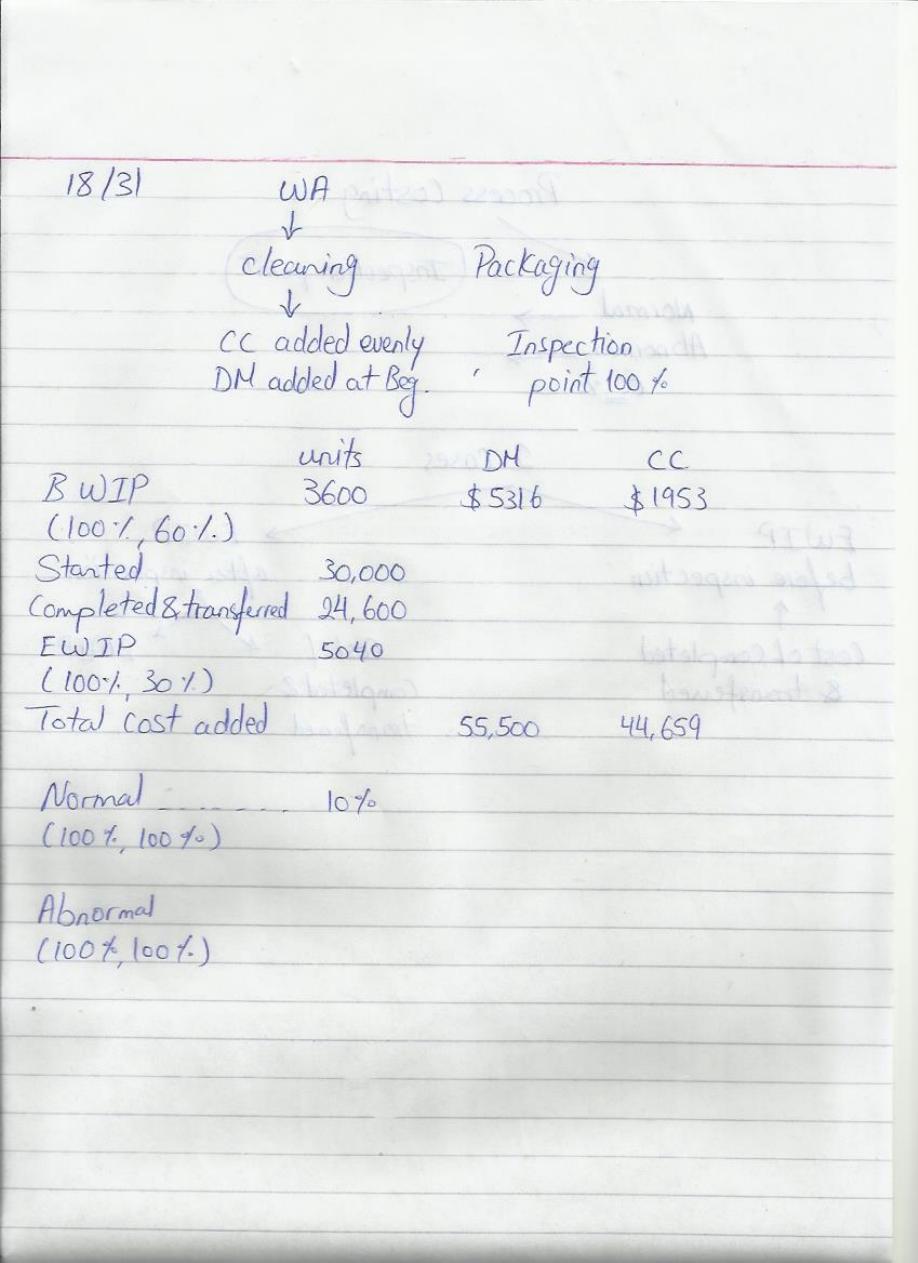 18/31 WA
↓
cleaning Packaging
↓
CC added evenly Inspection
DM added at Beg. point 100 %
units DM CC
B WIP 3600 $5316 $1953
(100%, 60%)
Started 30,000
Completed & transferred 24,600
EWIP 5040
(100%, 30%)
Total cost added 55,500 44,659
Normal ........ 10%
(100%, 100%)
Abnormal
(100%, 100%)